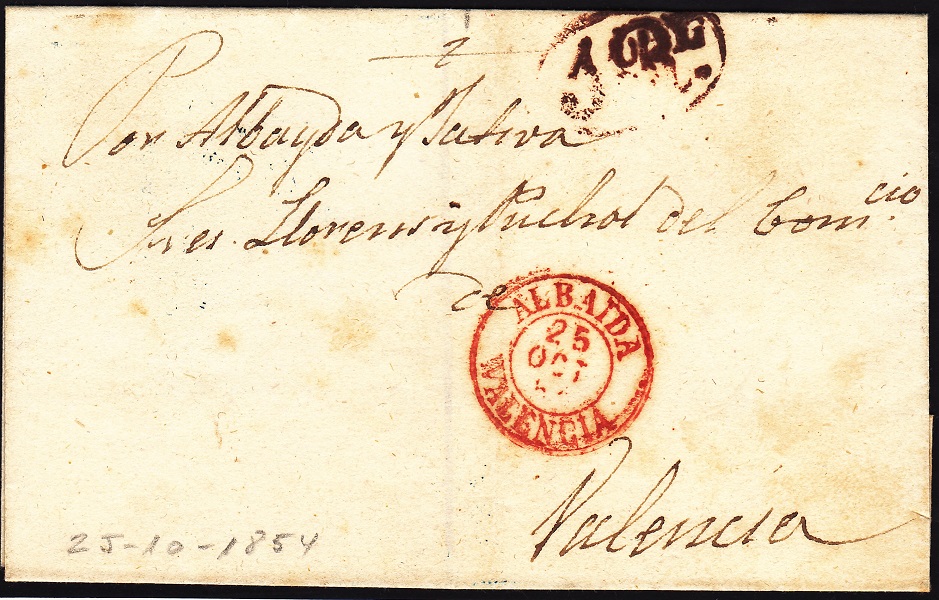 2
Por Albayda y Jativa
Sres. Llorens y Puchol del Comcio.
de
ALBAIDA
25
OCT
VALENCIA
Valencia
25-10-1854